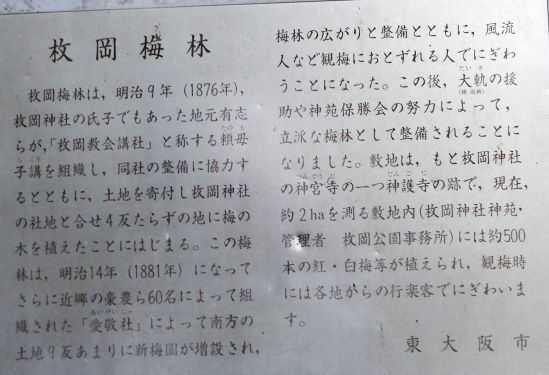 枚岡梅林
枚岡梅林は，明治9年（1876年），
枚岡神社の氏子でもあった地元有志
らが，「枚岡教会講社」と称する頼母
子講を組織し，同社の整備に協力す
るとともに，土地を寄付し枚岡神社
の社地と合せ4反たらずの地に梅の
木を植えたことにはじまる。この梅
林は，明治14年（1881年）になって
さらに近郷の豪農ら60名によって組
織された「愛敬社」によって南方の
土地9反あまりに新梅園が増設され，
梅林の広がりと整備とともに，風流
人など観梅におとずれる人でにぎわ
うことになった。この後，大軌の援
助や神苑保勝会の努力によって，
立派な梅林として整備されることに
なりました。敷地は，もと枚岡神社
の神宮寺の一つ神護寺の跡で，現在，
約2haを測る敷地内（枚岡神社神苑・
管理者　枚岡公園事務所）には約500
本の紅・白梅等が植えられ，観梅時
には各地からの行楽客でにぎわいま
す。
東大阪市